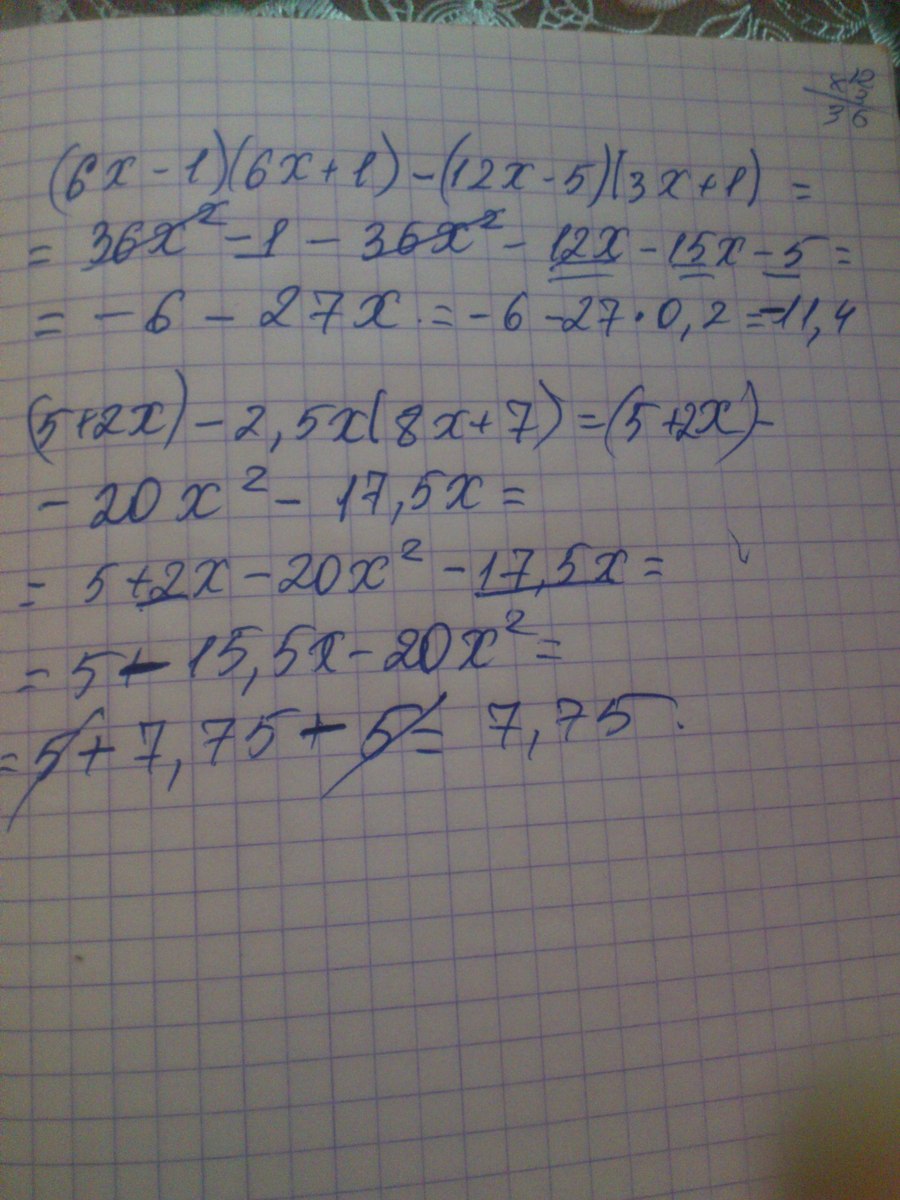 (6x-1)(6x+1)-(12x-5)(3x+1)=
=36x²-1-36x²-12x-15x-5=
=-6-27x.=-6-27·0,2=-11,4
(5+2x)-2,5x(8x+7)=(5+2x)-
-20x²-17,5x=
=5+2x-20x²-17,5x=
=5-15,5x-20x²=
=5+7,75-5=7,75.